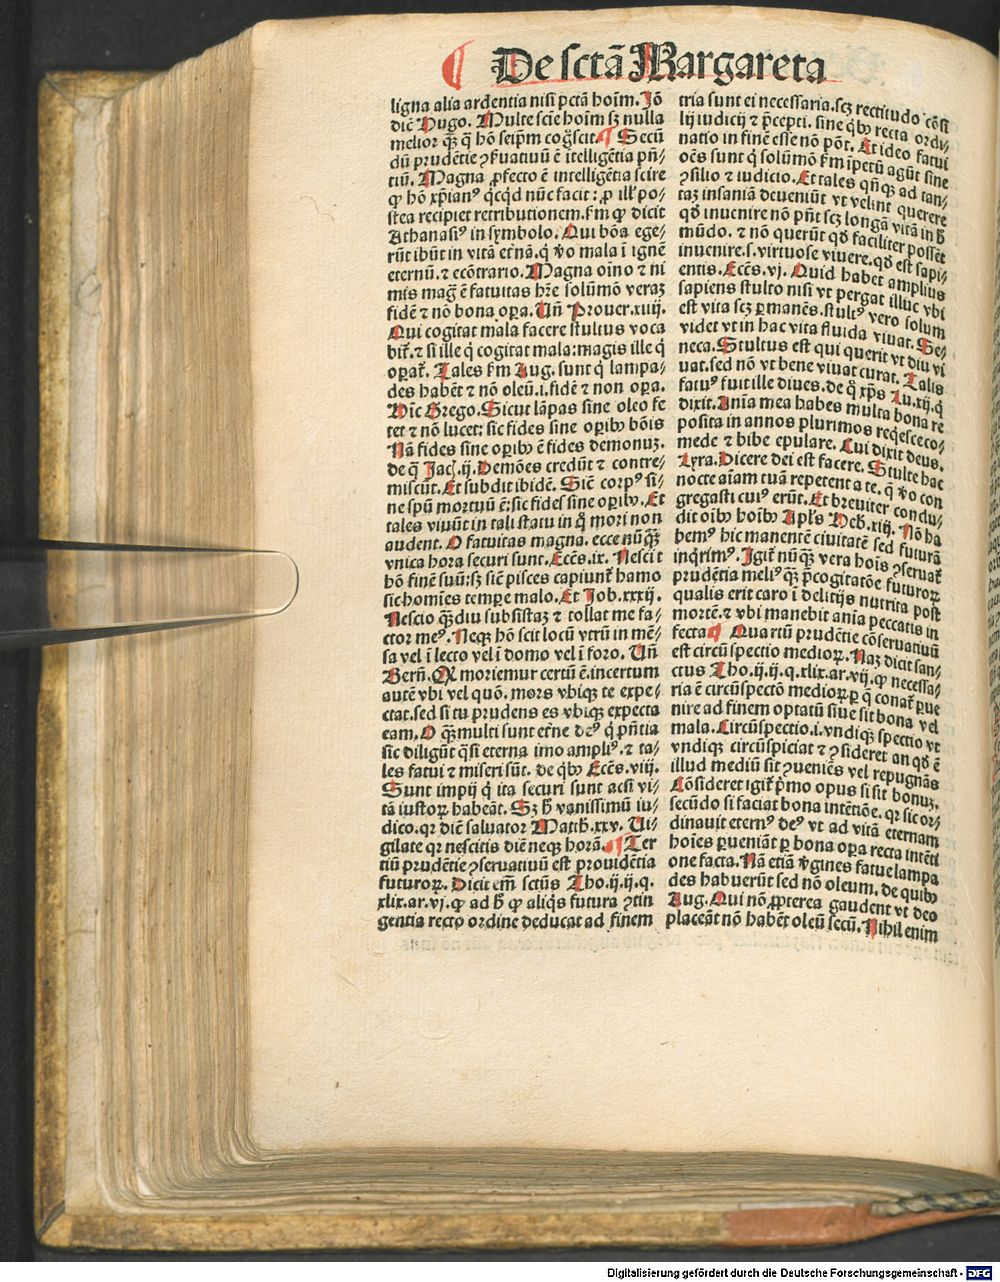 ¶ De sctā Margareta
ligna alia ardentia nisi pctā hoīm. Jō
dic̄ Hugo. Multe scīe hoīm sꝫ nulla
melior qꝫ q̄ hō seip̄m coḡscit. ¶ Secū
dū prudētie ꝯẜuatiuū ē ītelligētia pn̄-
tiū. Magna ꝓfecto ē intelligētia scire
ꝙ hō xp̄ianꝰ qc̄qd nūc facit: ꝓ illꝰ po-
stea recipiet retributionem. fm ꝙ dicit
Athanasiꝰ in symbolo. Qui bōa ege-
rūt ibūt in vitā et̄nā. q̄ ꝟo mala ī ignē
eternū. ⁊ ecōtrario. Magna oīno ⁊ ni
mis maḡ ē fatuitas hr̄e solūmō veraꝫ
fidē ⁊ nō bona oꝑa. Un̄ Prouer. xiiij.
Qui cogitat mala facere stultus voca
bit̄. ⁊ si ille q̄ cogitat mala: magis ille q̄
oꝑat̄. Tales fm Aug. sunt q̄ lampa-
des habēt ⁊ nō oleū. i. fidē ⁊ non oꝑa.
Hīc Grego. Sicut lāpas sine oleo fe
tet ⁊ nō lucet: sic fides sine oꝑibꝰ bōis
Nā fides sine oꝑibꝰ ē fides demonuꝫ.
de q̄ Jac̄. ij. Demōes credūt ⁊ contre-
miscūt. Et subdit ibidē. Sic̄ corpꝰ si-
ne spū mortuū ē: sic fides sine oꝑibꝰ. Et
tales viuūt in tali statu in q̄ mori non
audent. O fatuitas magna. ecce nūqꝫ
vnica hora securi sunt. Ecc̄s. ix. Nescit
hō finē suū: sꝫ sic̄ pisces capiunt̄ hamo
sic homīes tempe malo. Et Job. xxxij.
Nescio qꝫdiu subsistaꝫ ⁊ si tollat me fa-
ctor meꝰ. Neqꝫ hō scit locū vtrū in mē-
sa vel ī lecto vel ī domo vel ī foro. Un̄
Bern̄. Qꝫ moriemur certū ē. incertum
autē vbi vel quō. mors vbiqꝫ te expe-
ctat. sed si tu prudens es vbiqꝫ expecta
eam. O qꝫ multi sunt et̄ne deꝰ q̄ pn̄tia
sic diligūt q̄si eterna imo ampliꝰ. ⁊ ta-
les fatui ⁊ miseri sūt. de qbꝰ Ecc̄s. viij.
Sunt impij q̄ ita securi sunt acsi vi-
tā iustoꝝ habeāt. Sꝫ ħ vanissimū iu-
dico. qr dic̄ saluator Matth. xxv. Ui-
gilate qr nescitis diē neqꝫ horā. ¶ Ter
tiū prudētie ꝯseruatiuū est prouidētia
futuroꝝ. Dicit em̄ sctūs Tho. ij. ij. q.
xlix. ar. vj. ꝙ ad ħ ꝙ aliqs futura ꝯtin
gentia recto ordine deducat ad finem
tria sunt ei necessaria. scꝫ rectitudo cōsi
lij iudicij ⁊ p̄cepti. sine qbꝰ recta ordi-
natio in finē esse nō pōt. Et ideo fatui
oēs sunt q̄ solūmō fm īpetū agūt sine
ꝯsilio ⁊ iudicio. Et tales qn̄qꝫ ad tan-
taꝫ insaniā deueniūt vt velint querere
qd̄ inuenire nō pn̄t scꝫ longā vitā in ħ
mūdo. ⁊ nō querūt qd̄ faciliter possēt
inuenire. s. virtuose viuere. qd̄ est sapi-
entis. Ecc̄s. vj. Quid habet amplius
sapiens stulto nisi vt pergat illuc vbi
est vita scꝫ ꝑmanēs. stultꝰ vero solum
videt vt in hac vita fluida viuat. Se-
neca. Stultus est qui querit vt diu vi
uat. sed nō vt bene viuat curat. Talis
fatuꝰ fuit ille diues. de q̄ xp̄s Lu. xij. q̄
dixit. Anīa mea habes multa bona re
posita in annos plurimos reqesce co-
mede ⁊ bibe epulare. Cui dixit deus.
Lyra. Dicere dei est facere. Stulte hac
nocte aīam tuā repetent a te. q̄ ꝟo con
gregasti cuiꝰ erūt. Et breuiter condu-
dit oībꝰ hoībꝰ Apl̄s Heb. xiij. Nō ha
bemꝰ hic manentē ciuitatē sed futurā
inqrimꝰ. Igit̄ nūqꝫ vera hoīs ꝯseruat̄
prudētia meliꝰ qꝫ p̄cogitatōe futuroꝝ
qualis erit caro ī delitijs nutrita post
mortē. ⁊ vbi manebit anīa peccatis in
fecta ¶ Quartū prudētie cōseruatiuū
est circūspectio medioꝝ. Naꝫ dicit san-
ctus Tho. ij. ij. q. xlix. ar. vij. ꝙ necessa-
ria ē circūspectō medioꝝ ꝑ q̄ conat̄ ꝑue
nire ad finem optatū siue sit bona vel
mala. Circūspectio. i. vndiqꝫ spectio vt
vndiqꝫ circūspiciat ⁊ ꝯsideret an qd̄ ē
illud mediū sit ꝯueniēs vel repugnās
Cōsideret igit̄ p̄mo opus si sit bonuꝫ.
secūdo si faciat bona intētiōe. qr sic or-
dinauit eternꝰ deꝰ vt ad vitā eternam
hoīes ꝑueniāt ꝑ bona oꝑa recta intēti
one facta. Nā etiā ꝟgines fatue lampa
des habuerūt sed nō oleum. de quibꝰ
Aug. Qui nō ꝓpterea gaudent vt deo
placeāt nō habēt oleū secū. Nihil enim
Digitalisierung gefördert durch die Deutsche Forschungsgemeinschaft - DFG